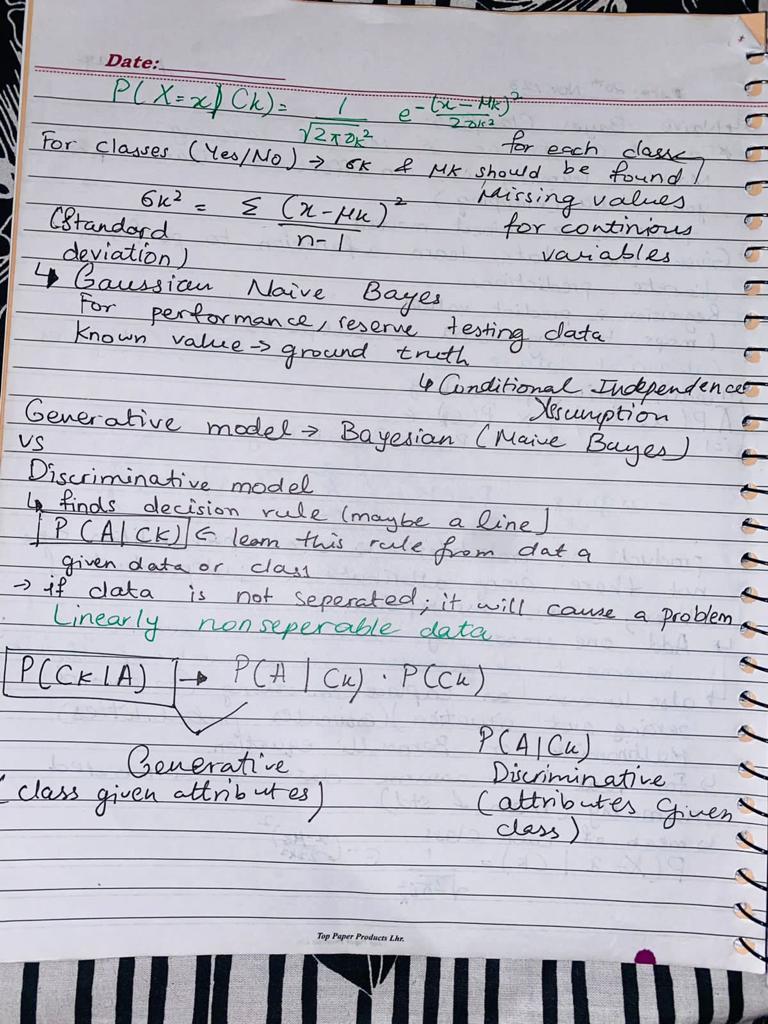 Date:
P(X=x|Ck) = 1/√2πσk² e-(x-μk)²/2σk²
for each class
For classes (Yes/No) → σk & μk should be found
Missing values
for continious
variables
σk² = Σ (x-μk)²/n-1
(Standard
deviation)
↳ Gaussian Naive Bayes
For performance, reserve testing data
Known value → ground truth
↳ Conditional Independence
Assumption
Generative model → Bayesian (Naive Bayes)
vs
Discriminative model
↳ finds decision rule (maybe a line)
P(A|CK) ← learn this rule from data
given data or class
→ if data is not seperated; it will cause a problem
Linearly nonseperable data
P(CK|A) → P(A|Ck) · P(Ck)
Generative
(class given attributes)
P(A|Ck)
Discriminative
(attributes given
class)
Top Paper Products Lhr.